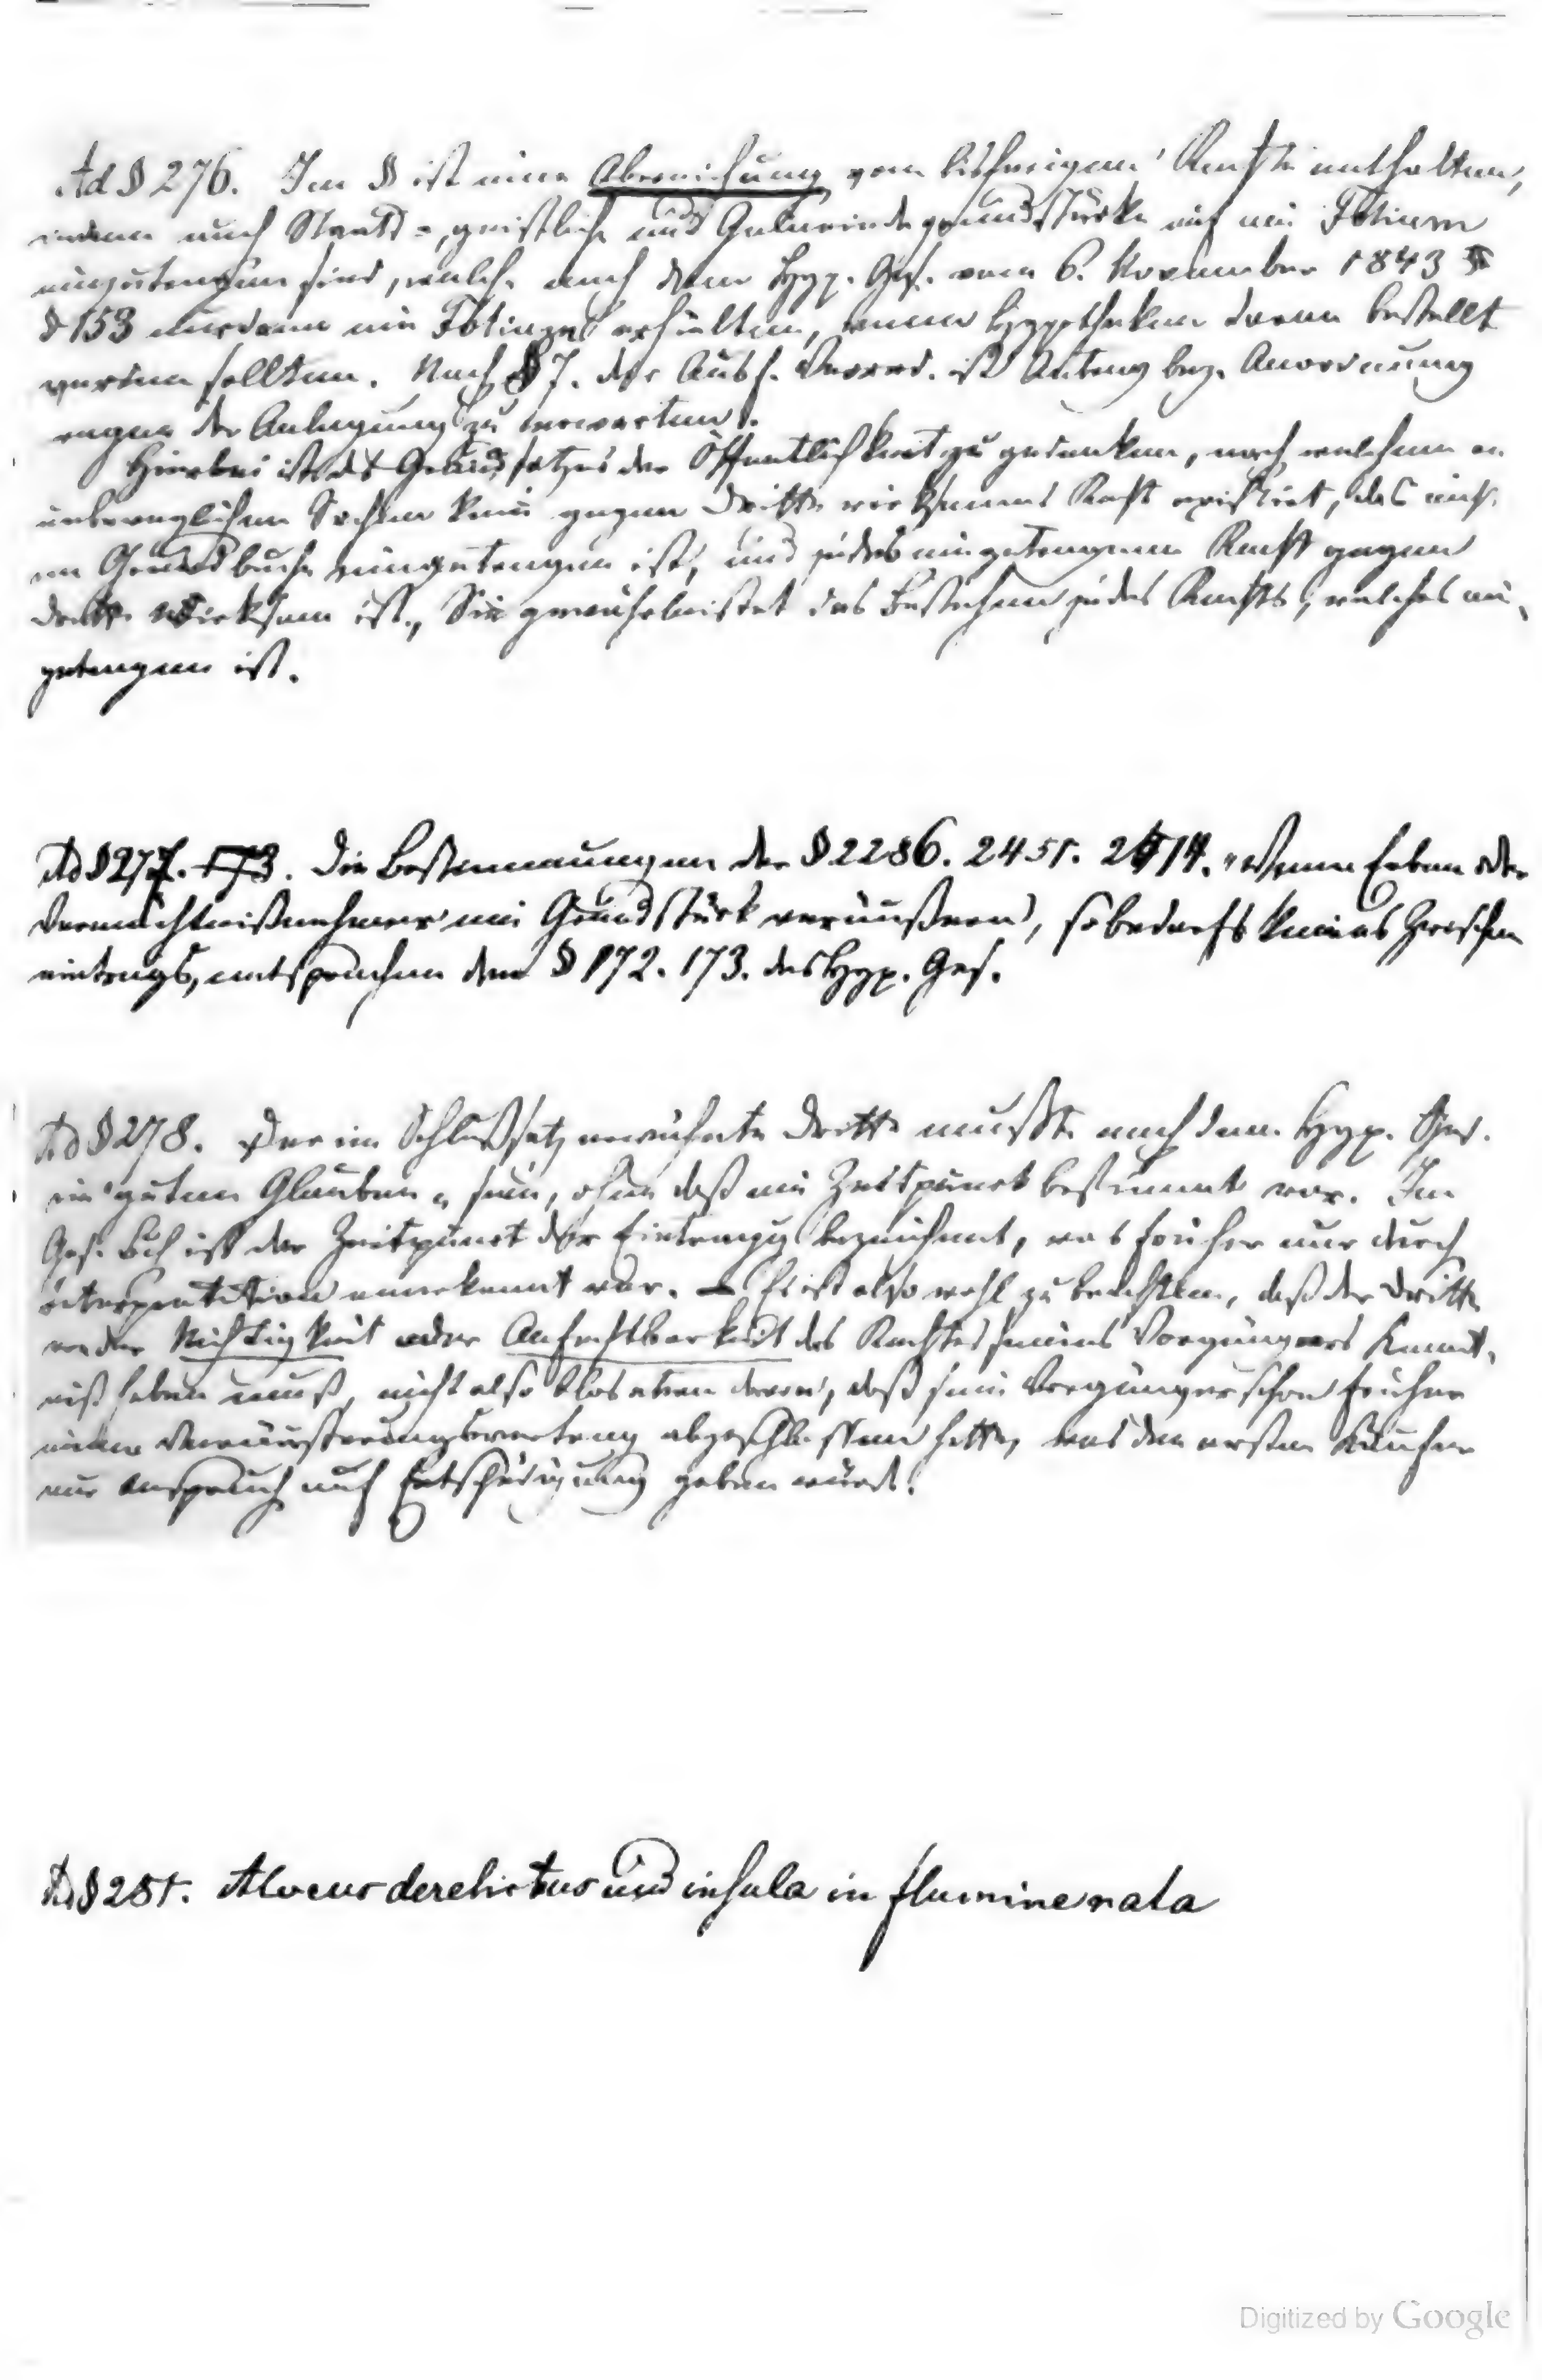 Ad § 276. Im § ist eine Abweichung vom bisherigen Rechte enthalten,
indem auch Staats-, geistliche und Gemeindegrundstücke auf ein Folium
einzutragen sind, welche nach dem Hyp. Ges. vom 6. November 1843
§ 153 nur dann ein Folium erhielten, wenn Hypotheken daran bestellt
werden sollten. Nach § 7. der Ausf. Verord. ist Antrag bez. Anordnung
wegen der Anlegung zu erwarten.
Hierbei ist des Grundsatzes der Öffentlichkeit zu gedenken, nach welchem an
unbeweglichen Sachen kein gegen Dritte wirksames Recht existirt, das nicht
im Grundbuche eingetragen ist, und jedes eingetragene Recht gegen
Dritte wirksam ist. Sie gewährleistet das Bestehen jedes Rechts, welches ein-
getragen ist.
Ad § 277. Die Bestimmungen der § 2286. 2451. 2514. "Wenn Erben oder
Vermächtnißnehmer ein Grundstück veräußern, so bedarfs keines Zwischen
eintrags, entsprechen dem § 172. 173. des Hyp. Ges.
Ad § 278. Der im Schlußsatz erwähnte Dritte mußte nach dem Hyp. Ges.
in "gutem Glauben" sein, ohne daß ein Zeitpunct bestimmt war. Im
Ges. Bch ist der Zeitpunct der Eintragg bezeichnet, was früher nur durch
Interpretation anerkannt war. – Es ist also wohl zu beachten, daß der Dritte
von der Nichtigkeit oder Anfechtbarkeit des Rechtes seines Vorgängers Kennt-
niß haben muß, nicht also blos etwa davon, daß sein Vorgänger schon früher
einen Veräußerungsvertrag abgeschlossen hatte, was dem ersten Käufer
nur Anspruch auf Entschädigung geben würde.
Ad § 281. Alveus derelictus und insula in flumine nata
Digitized by Google